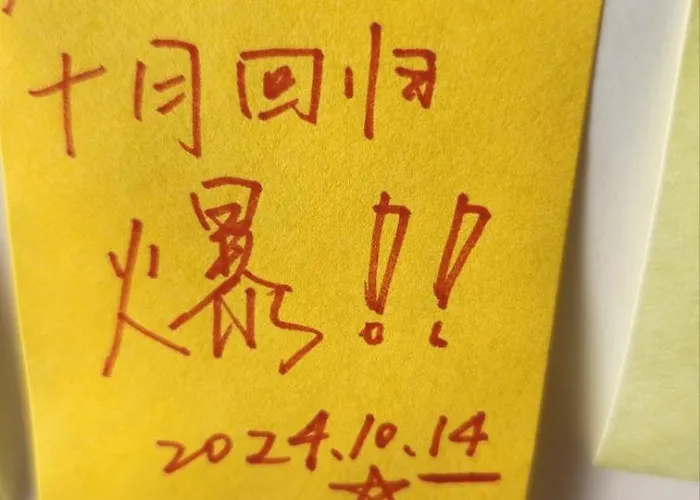 十月回归
爆!!
2024.10.14